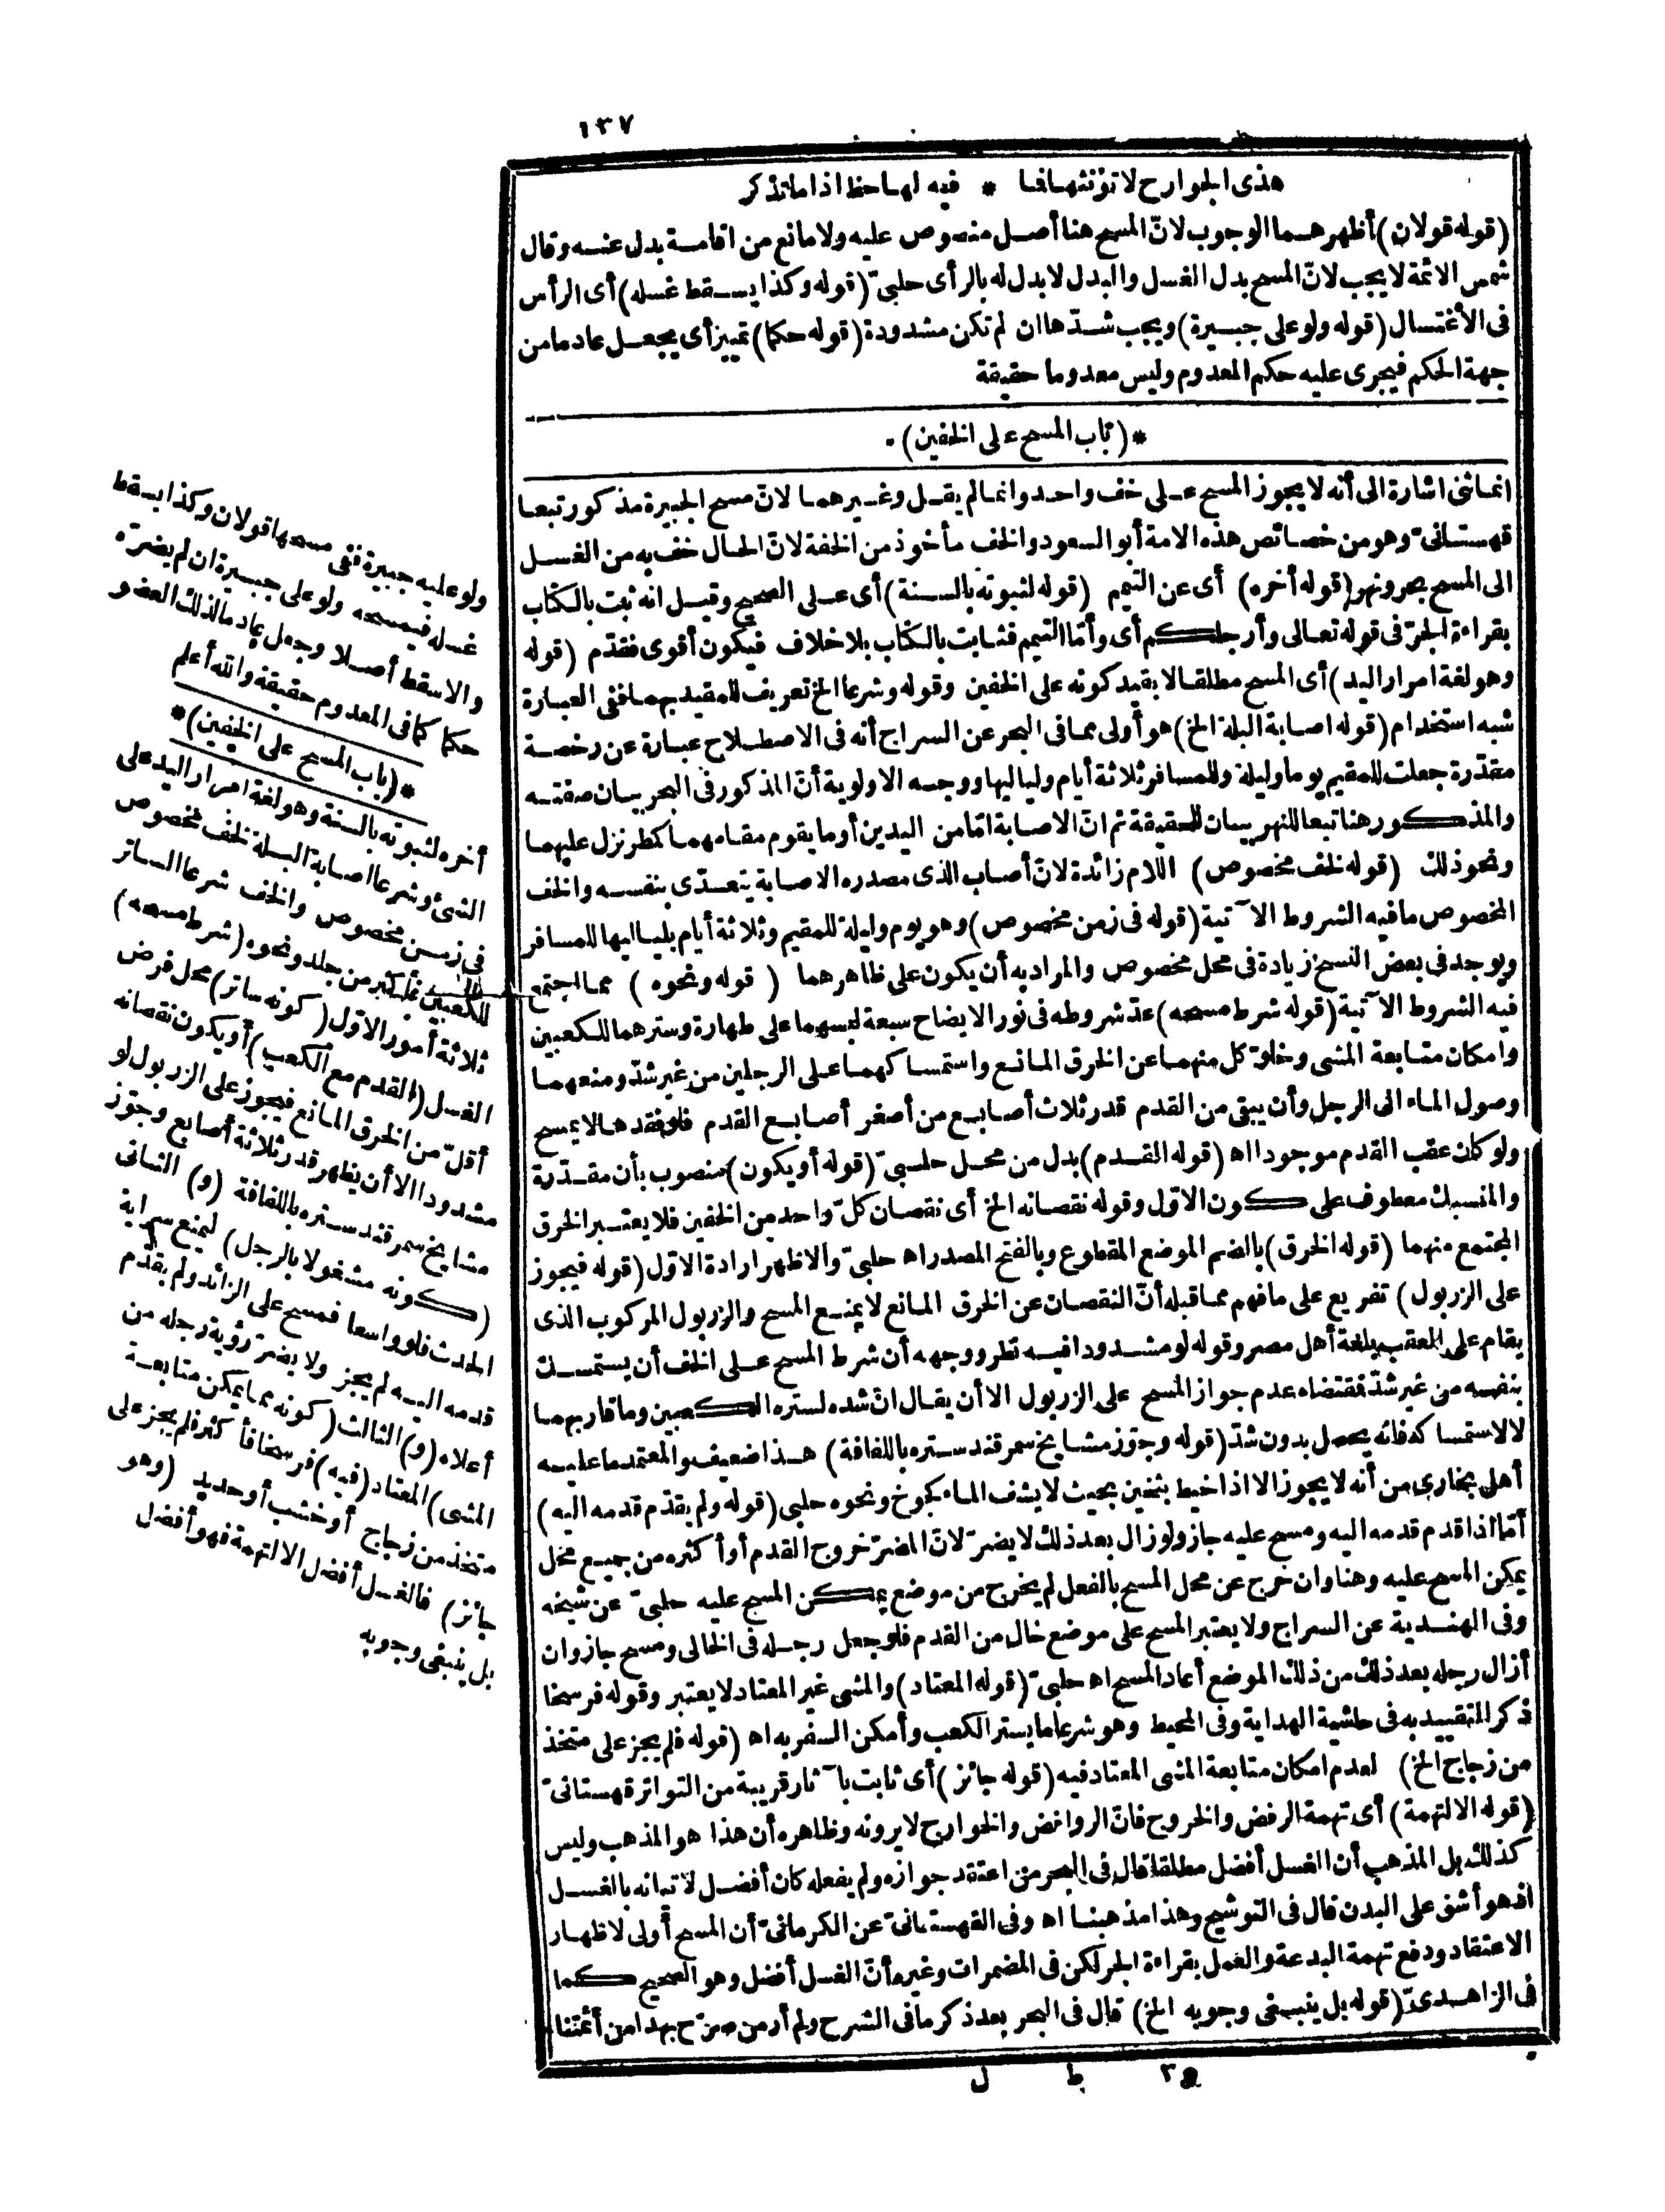 ١٣٧
هذى الجوارح لا تؤنثها فا * فيه لها حظ اذا ما تذكر
(قوله قولان) أظهرهما الوجوب لانّ المسح هنا أصل منصوص عليه ولا مانع من اقامة بدل عنه وقال
شمس الائمة لا يجب لانّ المسح بدل الغسل والبدل لا بدل له بالرأى حلبىّ (قوله وكذا يسقط غسله) أى الرأس
فى الاغتسال (قوله ولو على جبيرة) ويجب شدّها ان لم تكن مشدودة (قوله حكما) تمييز أى يجعل عادما من
جهة الحكم فيجرى عليه حكم المعدوم وليس معدوما حقيقة
*(باب المسح على الخفين)*
انما ثنى اشارة الى أنه لا يجوز المسح على خف واحد وانما لم يقل وغيرهما لانّ مسح الجبيرة مذكور تبعا
قهستانىّ وهو من خصائص هذه الامة أبو السعود والخف مأخوذ من الخفة لانّ الحال خف به من الغسل
الى المسح بحر ونهر (قوله أخره) أى عن التيمم (قوله لثبوته بالسنة) أى على الصحيح وقيل انه ثبت بالكتاب
بقراءة الجرّ فى قوله تعالى وأرجلكم أى وأمّا التيمم فثابت بالكتاب بلا خلاف فيكون أقوى فقدّم (قوله
وهو لغة امرار اليد) أى المسح مطلقا لا بقيد كونه على الخفين وقوله وشرعا الخ تعريف للمقيد بهما ففى العبارة
شبه استخدام (قوله اصابة البلة الخ) هو أولى مما فى البحر عن السراج أنه فى الاصطلاح عبارة عن رخصة
مقدّرة جعلت للمقيم يوما وليلة وللمسافر ثلاثة أيام ولياليها ووجه الاولوية أنّ المذكور فى البحر بيان صفته
والمذكور هنا تبعا للنهر بيان للحقيقة ثم انّ الاصابة امّا من اليدين أو ما يقوم مقامهما كمطر نزل عليهما
ونحو ذلك (قوله لخف مخصوص) اللام زائدة لانّ أصاب الذى مصدره الاصابة يتعدّى بنفسه والخف
المخصوص ما فيه الشروط الآتية (قوله فى زمن مخصوص) وهو يوم وليلة للمقيم وثلاثة أيام بلياليها للمسافر
ويوجد فى بعض النسخ زيادة فى محل مخصوص والمراد به أن يكون على ظاهرهما (قوله ونحوه) مما اجتمع
فيه الشروط الآتية (قوله شرط مسحه) عدّ شروطه فى نور الايضاح سبعة لبسهما على طهارة وسترهما للكعبين
وامكان متابعة المشى وخلوّ كل منهما عن الخرق المانع واستمساكهما على الرجلين من غير شدّ ومنعهما
وصول الماء الى الرجل وأن يبقى من القدم قدر ثلاث أصابع من أصغر أصابع القدم فلو فقدها لا يمسح
ولو كان عقب القدم موجودا اه (قوله القدم) بدل من محل حلبىّ (قوله أو يكون) منصوب بأن مقدّرة
والمنسبك معطوف على كون الاوّل وقوله نقصانه الخ أى نقصان كلّ واحد من الخفين فلا يعتبر الخرق
المجتمع منهما (قوله الخرق) بالضم الموضع المقطوع وبالفتح المصدر اه حلبىّ والاظهر ارادة الاوّل (قوله فيجوز
على الزربول) تفريع على ما فهم مما قبله أنّ النقصان عن الخرق المانع لا يمنع المسح والزربول المركوب الذى
يقام على العقب بلغة أهل مصر وقوله لو مشدودا فيه نظر ووجهه أن شرط المسح على الخف أن يستمسك
بنفسه من غير شدّ فمقتضاه عدم جواز المسح على الزربول الا أن يقال انّ شده لستره الكعبين وما قاربهما
لا لاستمساكه فانه يحصل بدون شدّ (قوله وجوّز مشايخ سمرقند ستره باللفافة) هذا ضعيف والمعتمد ما عليه
أهل بخارى من أنه لا يجوز الا اذا خيط بثخين بحيث لا يشف الماء كجوخ ونحوه حلبى (قوله ولم يقدّم قدمه اليه)
أمّا اذا قدم قدمه اليه ومسح عليه جاز ولو زال بعد ذلك لا يضرّ لانّ المضرّ خروج القدم أو أكثره من جميع محل
يمكن المسح عليه وهنا وان خرج عن محل المسح بالفعل لم يخرج من موضع يمكن المسح عليه حلبىّ عن شيخه
وفى الهندية عن السراج ولا يعتبر المسح على موضع خال من القدم فلو جعل رجله فى الخالى ومسح جاز وان
أزال رجله بعد ذلك من ذلك الموضع أعاد المسح اه حلبىّ (قوله المعتاد) والمشى غير المعتاد لا يعتبر وقوله فرسخا
ذكر التقييد به فى حاشية الهداية وفى المحيط وهو شرعا ما يستر الكعب وأمكن السفر به اه (قوله فلم يجز على متخذ
من زجاج الخ) لعدم امكان متابعة المشى المعتاد فيه (قوله جائز) أى ثابت بآثار قريبة من التواتر قهستانىّ
(قوله الا لتهمة) أى تهمة الرفض والخروج فانّ الروافض والخوارج لا يرونه وظاهره أن هذا هو المذهب وليس
كذلك بل المذهب أن الغسل أفضل مطلقا قال فى البحر من اعتقد جوازه ولم يفعله كان أفضل لاتيانه بالغسل
اذ هو أشق على البدن قال فى التوشيح وهذا مذهبنا اه وفى القهستانىّ عن الكرمانىّ أن المسح أولى لاظهار
الاعتقاد ودفع تهمة البدعة والعمل بقراءة الجر لكن فى المضمرات وغيره أنّ الغسل أفضل وهو الصحيح كما
فى الزاهدىّ (قوله بل ينبغى وجوبه الخ) قال فى البحر بعد ذكر ما فى الشرح ولم أر من صرّح بهذا من أئمتنا
ولو عليه جبيرة ففى مسحها قولان وكذا يسقط
غسله فيمسحه ولو على جبيرة ان لم يضرّه
والا سقط أصلا وجعل عادما لذلك العضو
حكما كما فى المعدوم حقيقة والله أعلم
*(باب المسح على الخفين)*
أخره لثبوته بالسنة وهو لغة امرار اليد على
الشئ وشرعا اصابة البلة لخف مخصوص
فى زمن مخصوص والخف شرعا الساتر
للكعبين فأكثر من جلد ونحوه (شرط مسحه)
ثلاثة أمور الاوّل (كونه ساتر) محل فرض
الغسل (القدم مع الكعب) أو يكون نقصانه
أقلّ من الخرق المانع فيجوز على الزربول لو
مشدودا الا أن يظهر قدر ثلاثة أصابع وجوّز
مشايخ سمرقند ستره باللفافة (و) الثانى
(كونه مشغولا بالرجل) ليمنع سراية
الحدث فلو واسعا فمسح على الزائد ولم يقدّم
قدمه اليه لم يجز ولا يضرّ رؤية رجله من
أعلاه (و) الثالث (كونه مما يمكن متابعة
المشى) المعتاد (فيه) فرسخا فأكثر فلم يجز على
متخذ من زجاج أو خشب أو حديد (وهو
جائز) فالغسل أفضل الا لتهمة فهو أفضل
بل ينبغى وجوبه
٣٥ ط ل